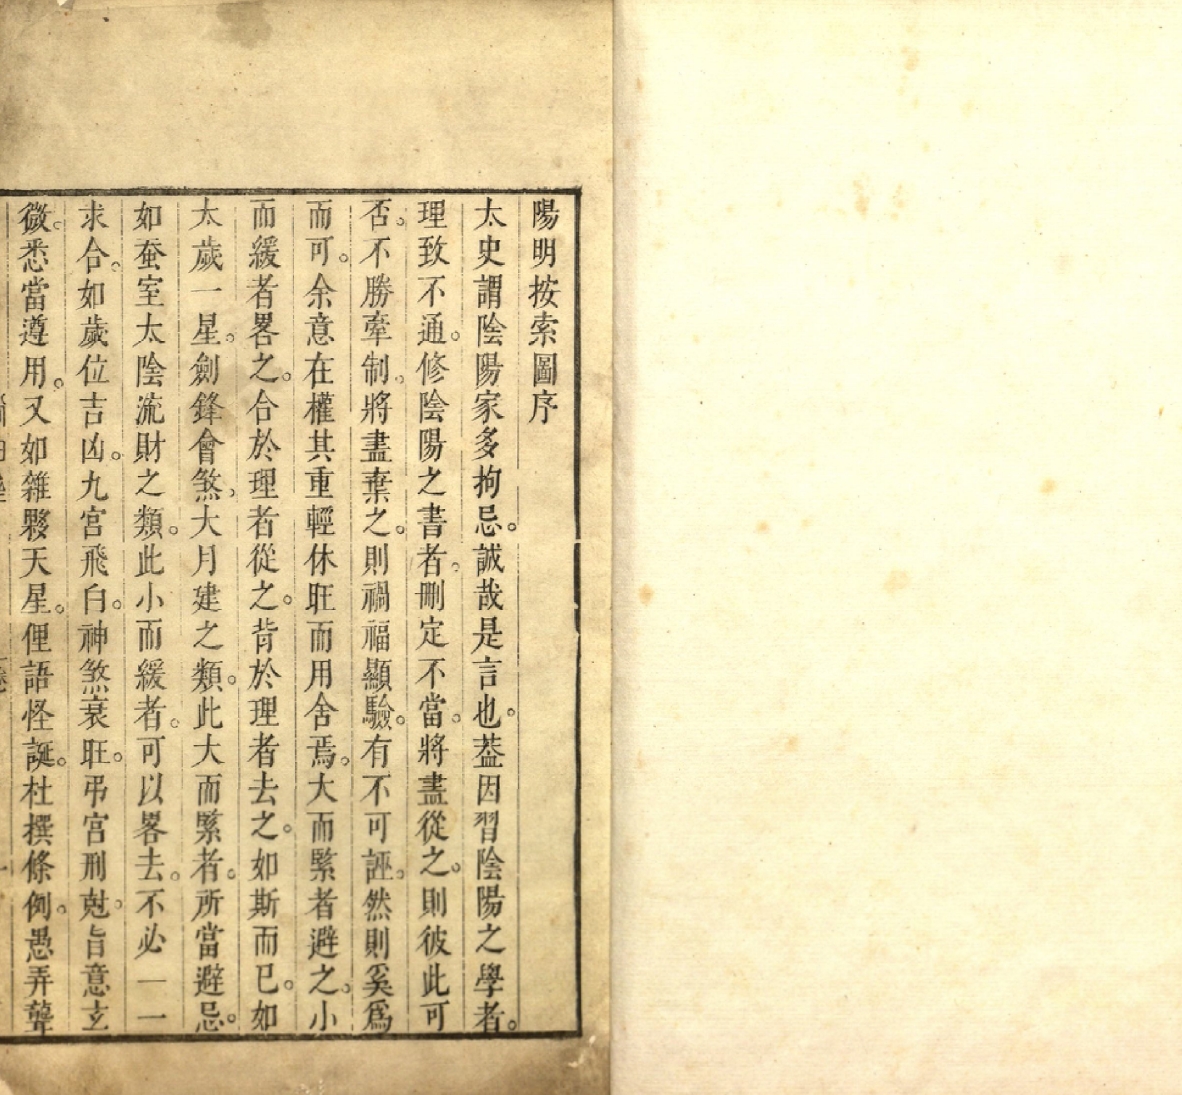 陽明按索圖序
太史謂陰陽家多拘忌。誠哉是言也。葢因習陰陽之學者。
理致不通。修陰陽之書者。刪定不當。將盡從之。則彼此可
否。不勝牽制。將盡棄之。則禍福顯驗。有不可誣。然則奚爲
而可。余意在權其重輕休旺而用舍焉。大而緊者避之。小
而緩者畧之。合於理者從之。背於理者去之。如斯而已。如
太歲一星。劍鋒會煞。大月建之類。此大而緊者。所當避忌。
如蚕室太陰流財之類。此小而緩者。可以畧去。不必一一
求合。如歲位吉凶。九宮飛白。神煞衰旺。弔宮刑尅。旨意玄
微。悉當遵用。又如雜夥天星。俚語怪誕。杜撰條例。愚弄聾